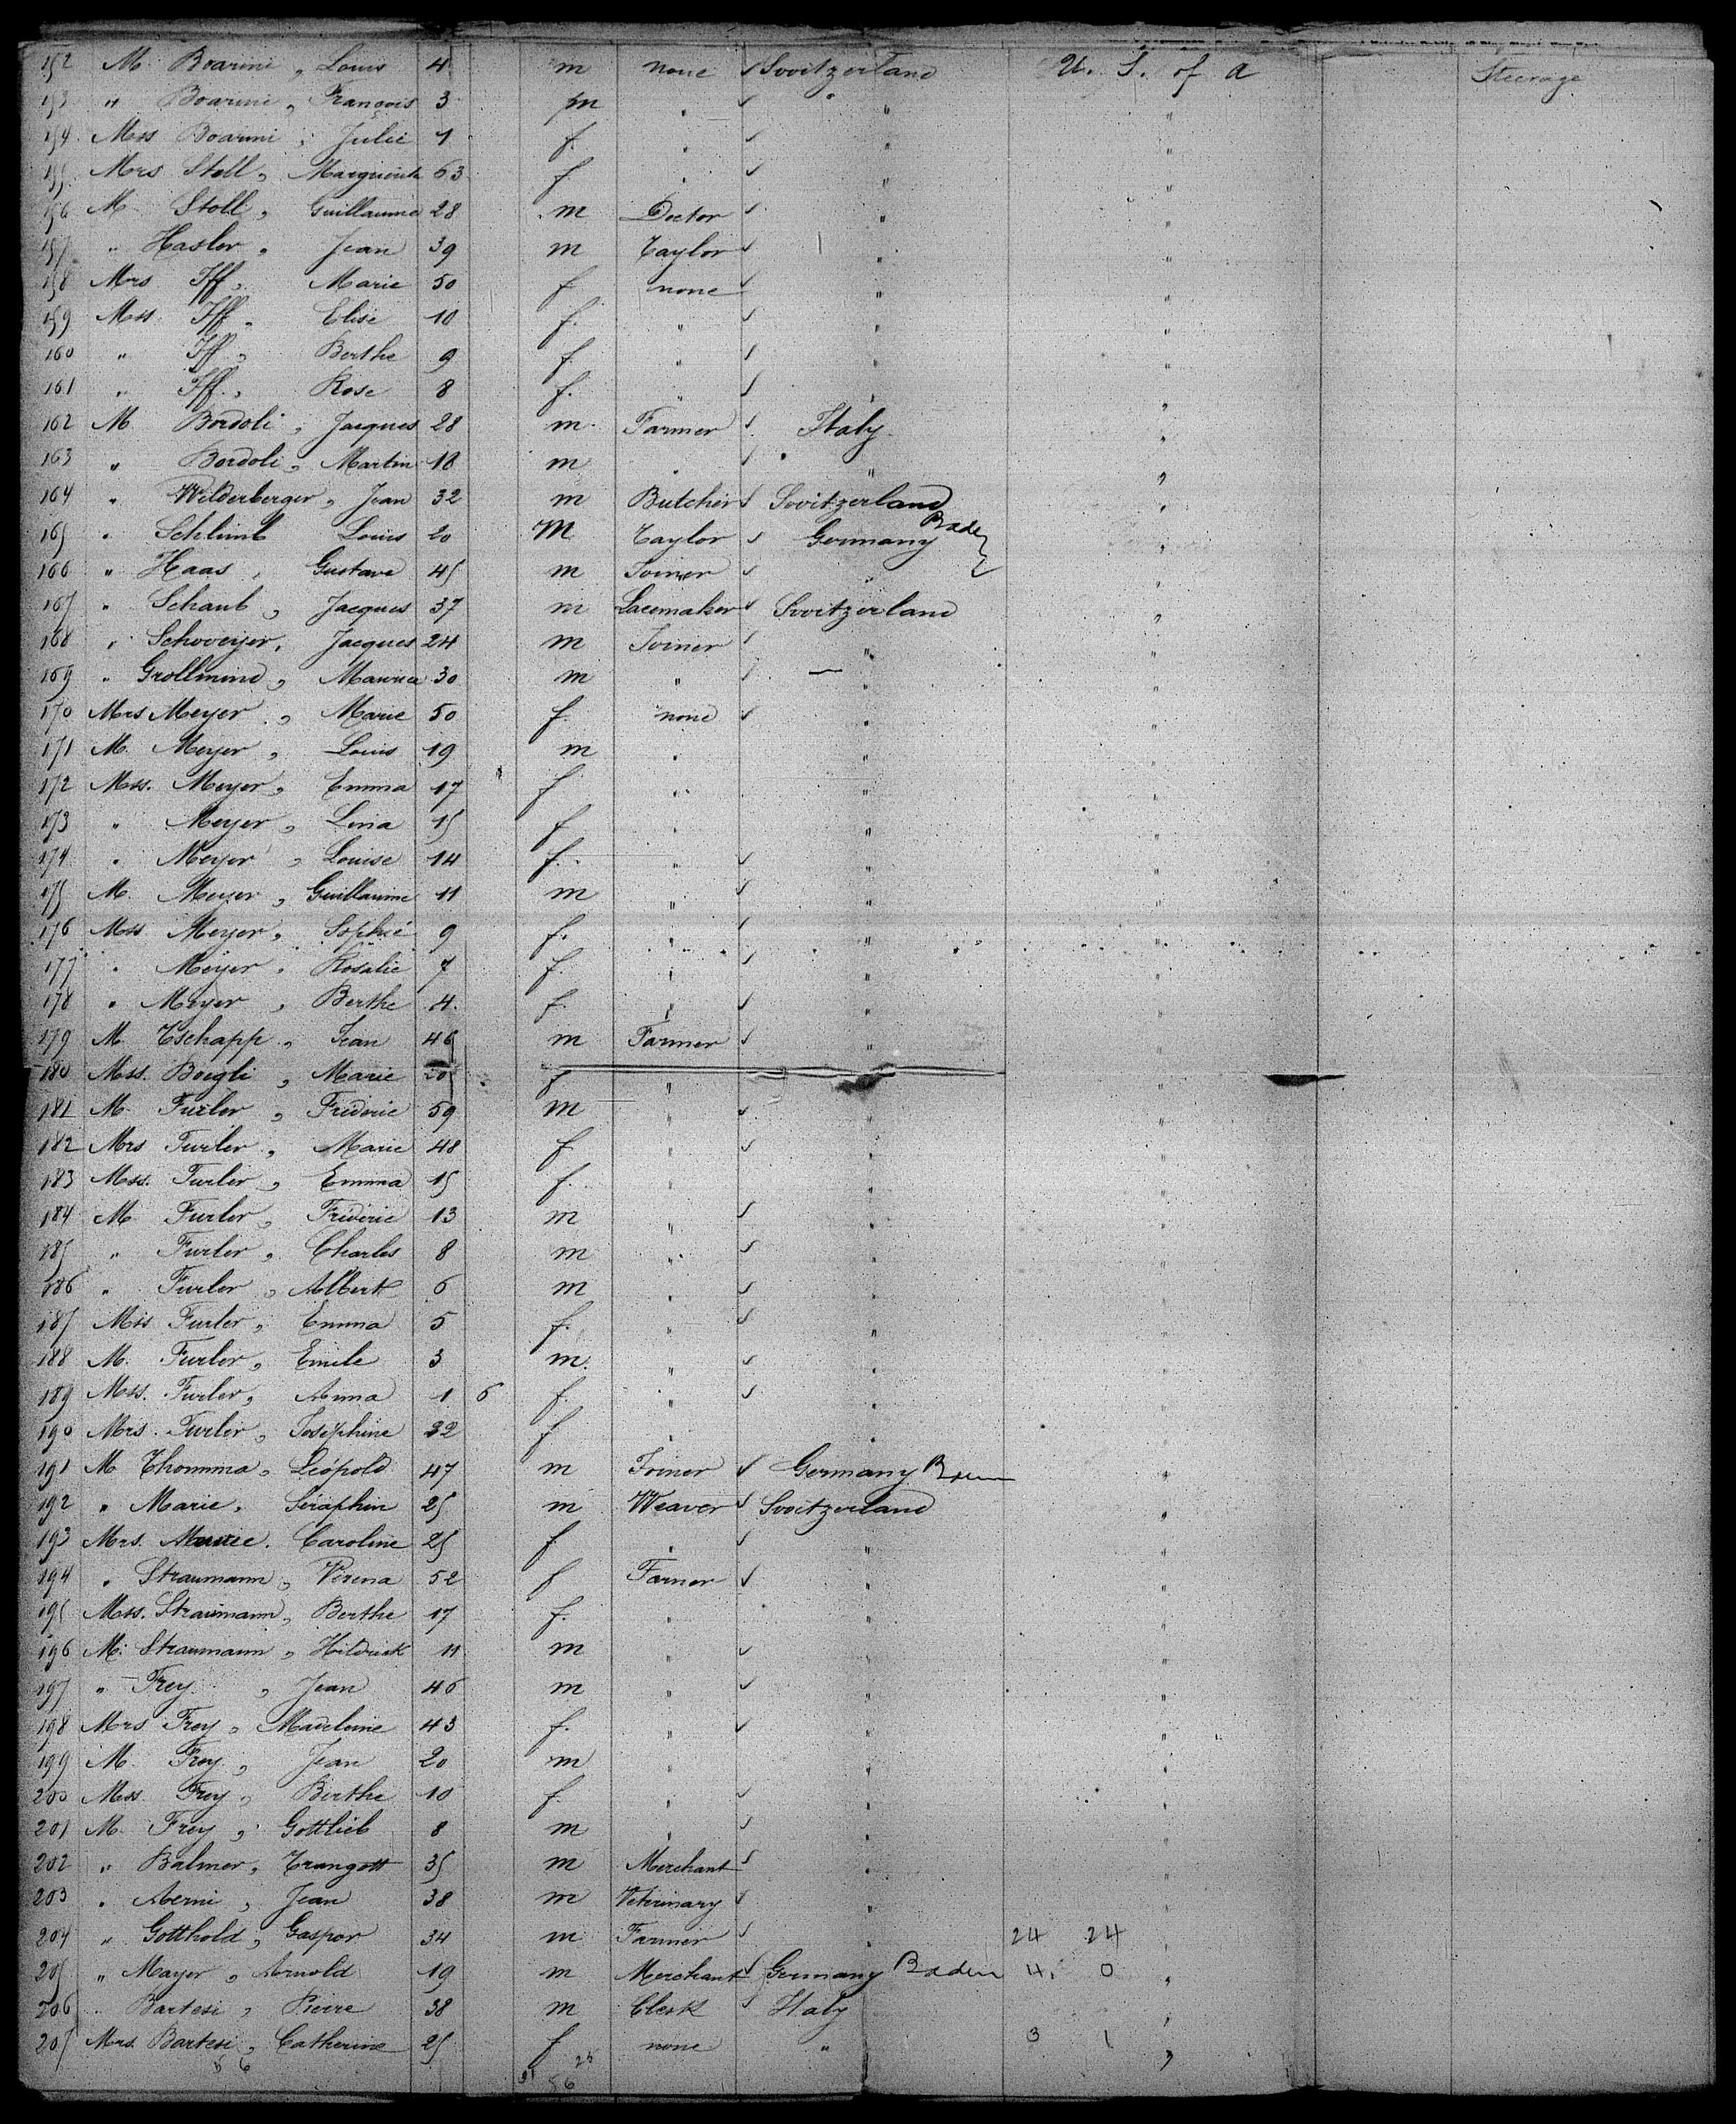 152 M. Boarini, Louis 4 m none ✓ Switzerland U. S. of A Steerage
153 " Boarini, François 3 m " ✓ " "
154 Mss Boarini, Julie 1 f. " ✓ " "
155 Mrs Stoll, Marguerite 63 f " ✓ " "
156 M. Stoll, Guillaume 28 m Doctor ✓ " "
157 " Hasler, Jean 39 m Taylor ✓ " "
158 Mrs Iff, Marie 50 f none ✓ " "
159 Mss Iff, Elise 10 f. " ✓ " "
160 " Iff, Berthe 9 f. " ✓ " "
161 " Iff, Rose 8 f. " ✓ " "
162 M. Bordoli, Jacques 28 m. Farmer ✓ Italy "
163 " Bordoli, Martin 18 m " ✓ " "
164 " Wilderberger, Jean 32 m Butcher ✓ Switzerland "
165 " Schlimb Louis 20 M Taylor ✓ Germany Bade "
166 " Haas, Gustave 45 m Joiner ✓ " "
167 " Schaub, Jacques 37 m Lacemaker ✓ Switzerland "
168 " Schweyer, Jacques 24 m Joiner ✓ " "
169 " Grollmind, Maurice 30 m " ✓ — " "
170 Mrs Meyer, Marie 50 f. none ✓ " "
171 M. Meyer, Louis 19 m " " "
172 Mss. Meyer, Emma 17 f " " "
173 " Meyer, Lina 15 f " " "
174 " Meyer, Louise 14 f. " ✓ " "
175 M. Meyer, Guillaume 11 m " ✓ " "
176 Mss Meyer, Sophie 9 f. " ✓ " "
177 " Meyer, Rosalie 7 f. " ✓ " "
178 " Meyer, Berthe 4. f. " ✓ " "
179 M. Tschapp, Jean 46 m Farmer ✓ " "
180 Mss. Boegli, Marie 20 f " "
181 M. Furler, Frideric 59 m " ✓ " "
182 Mrs Furler, Marie 48 f " ✓ " "
183 Mss. Furler, Emma 15 f. " " "
184 M Furler, Frideric 13 m " ✓ " "
185 " Furler, Charles 8 m " ✓ " "
186 " Furler, Albert 6 m " ✓ " "
187 Mss Furler, Emma 5 f. " ✓ " "
188 M. Furler, Emile 3 m. " ✓ " "
189 Mss. Furler, Anna 1 6 f. " ✓ " "
190 Mrs. Furler, Joséphine 32 f " " "
191 M Thomma, Léopold 47 m Joiner ✓ Germany "
192 " Marie, Séraphin 25 m Weaver ✓ Switzerland "
193 Mrs. Marie. Caroline 25 f " ✓ " "
194 " Straumann, Verena 52 f Farmer ✓ " "
195 Mss. Straumann, Berthe 17 f. " " "
196 M. Straumann, 11 m " ✓ " "
197 " Frey, Jean 46 m " ✓ " "
198 Mrs Frey, Madeleine 43 f. " ✓ " "
199 M. Frey, Jean 20 m " " "
200 Mss Frey, Berthe 10 f. " ✓ " "
201 M. Frey, Gottlieb 8 m " ✓ " "
202 " Balmer, Trangott 35 m Merchant ✓ " "
203 " Aerni, Jean 38 m Veterinary ✓ " "
204 " Gotthold, Gaspar 34 m Farmer ✓ " 24 24 "
205 " Mayer, Arnold 19 m Merchant ✓ Germany Baden 4. 0 "
206 " Bartesi, Pierre 38 m Clerk ✓ Italy "
207 Mrs. Bartesi, Catherine 25 f none " 3 1 "